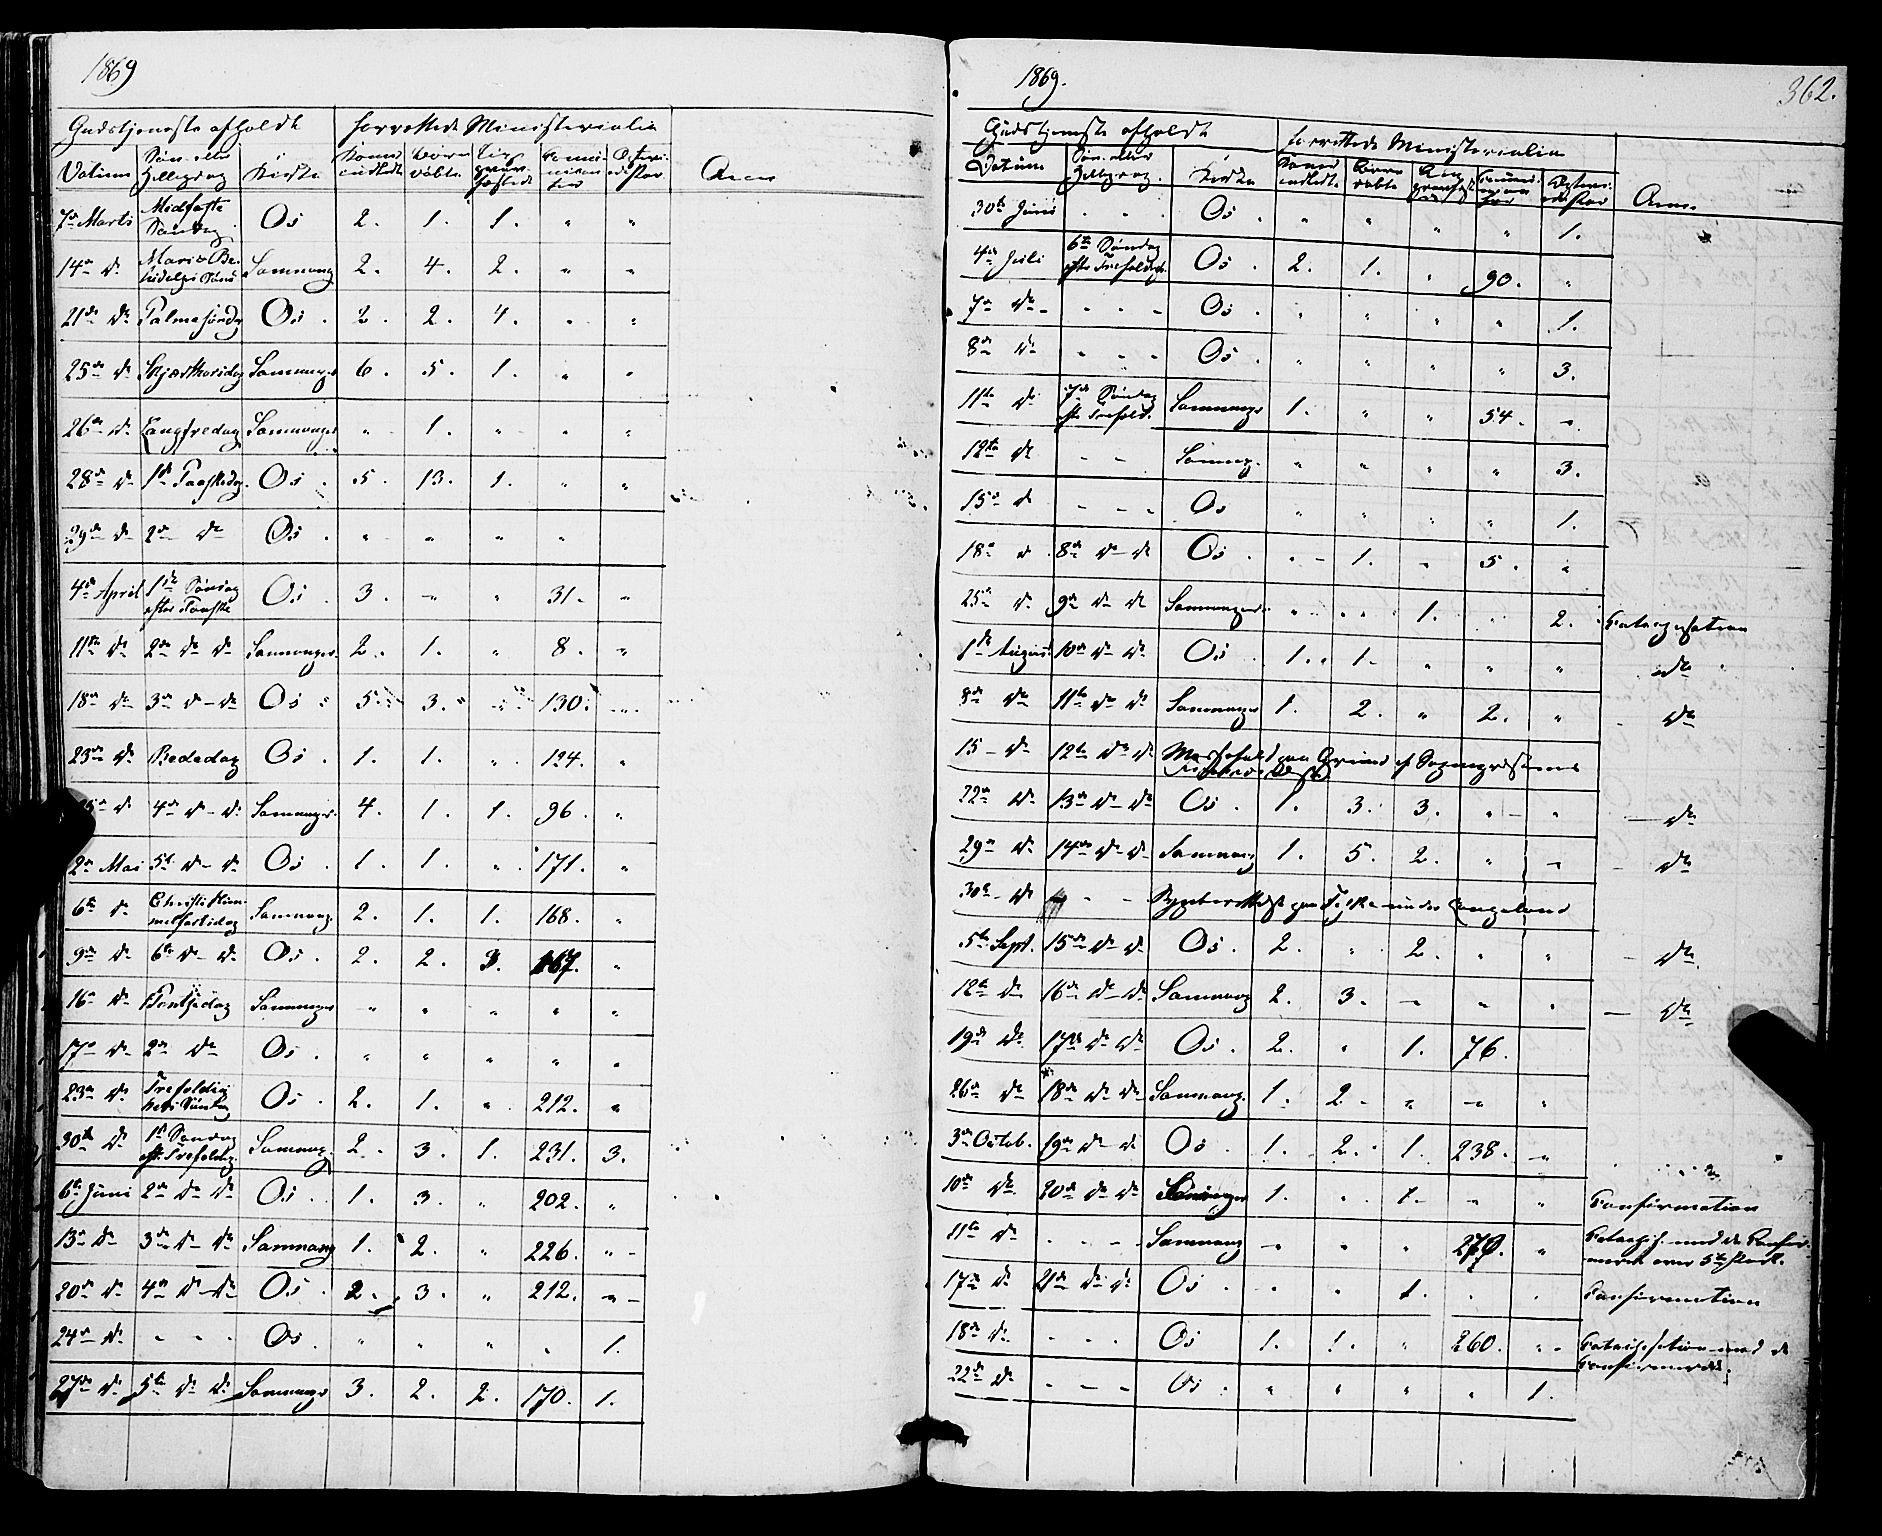 1869
Gudstjeneste afholdt forrettede Ministerialia
Datum Søn- eller Helligdag Kirke Koner indledte Børn døbte Lig Communicanter Anm
7de Marts Midfaste Søndag Os 2. 1. 1. " "
14de do Mariæ Be- Samnang 2. 4. 2. " "
21de do Palmesøndag Os 2. 2. 4. " "
25de do Skjærthorsdag Samnanger 6. 5. 1. " "
26de do Langfredag Samnanger " 1. " " "
28de do 1ste Paaskedag Os 5. 13. 1. " "
29de do 2den do Os " " " "
4de April 1ste Søndag efter Paaske Os 3. " " 31. "
11te do 2den do do Samnanger 2. 1. " 8. "
18de do 3de do do Os 5. 3. " 130. "
23de do Bededag Os 1. 1. " 124. "
25de do 4de do do Samnanger 4. 1. 1. 96. "
2den Mai 5te do do Os 1. 1. " 171. "
6te do Christi Himmelfartsdag Samnang 2. 1. 1. 168. "
9de do 6te do do Os 2. 2. 3. 167. "
16de do Pintsedag Samnanger " " " " "
17de do 2den do Os " " " " "
23de do Trefoldigheds Søndag Os 2. 1. " 212. "
30te do 1ste Søndag eft. Trefoldig. Samnang. 2. 3. 1. 231. 3.
6te Juni 2den do do Os 1. 3. " 202. "
13de do 3die do do Samnang 1. 2. " 226. "
20de do 4de do do Os 2. 3. " 212. "
24de do " " " Os " " " " 1.
27de do 5te do do Samnang 3. 2. 2. 170. 1.
1869.
362.
Gudstjeneste afholdt forrettede Ministerialia
Datum Søn- eller Helligdag. Kirke Koner indledte Børn døbte Anm.
30te Juni " " " Os " " " " 1.
4de Juli 6te Søndag efter Trefoldigh. Os 2. 1. " 90. "
7de do " " " Os " " " " 1.
8de do " " " Os " " " " 3.
11te do 7de Søndag eft. Trefold. Samnang 1. " " 54. "
12te do " " Samnang. " " " " 3.
15de do " " " Os " " " " 1.
18de do 8de do do Os " 1. " 5. "
25de do 9de do do Samnanger " " 1. " 2. Catechisation
1ste August 10de do do Os 1. 1. " " " do
8de do 11te do do Samnanger 1. 2. " 2. " do
15 do 12te do do Messefald paa Grund af Sognepræstens
22de do 13de do do Os 1. 3. 3. " " do
29de do 14de do do Samnang 1. 5. 2. " " do
30te do " "
5te Sept. 15de do do Os 2. " 2. " " do
12te do 16de do do Samnang 2. 3. " " " do
19de do 17de do do Os 2. " 1. 76.
26de do 18de do do Samnang. 1. 2. " " "
3die Octob. 19de do do Os 1. 2. 1. 238. "
10de do 20de do do Samnanger 1. " 1. " " Confirmation
11te do " " " Samnang " " " 270. " Catechis. med de Confirmerede
17de do 21de do do Os " " 1. " " Confirmation
18de do " " " Os 1. 1. " 260. " Catechisation med de Confirmerede
22de do " " " Os " " " " 1.